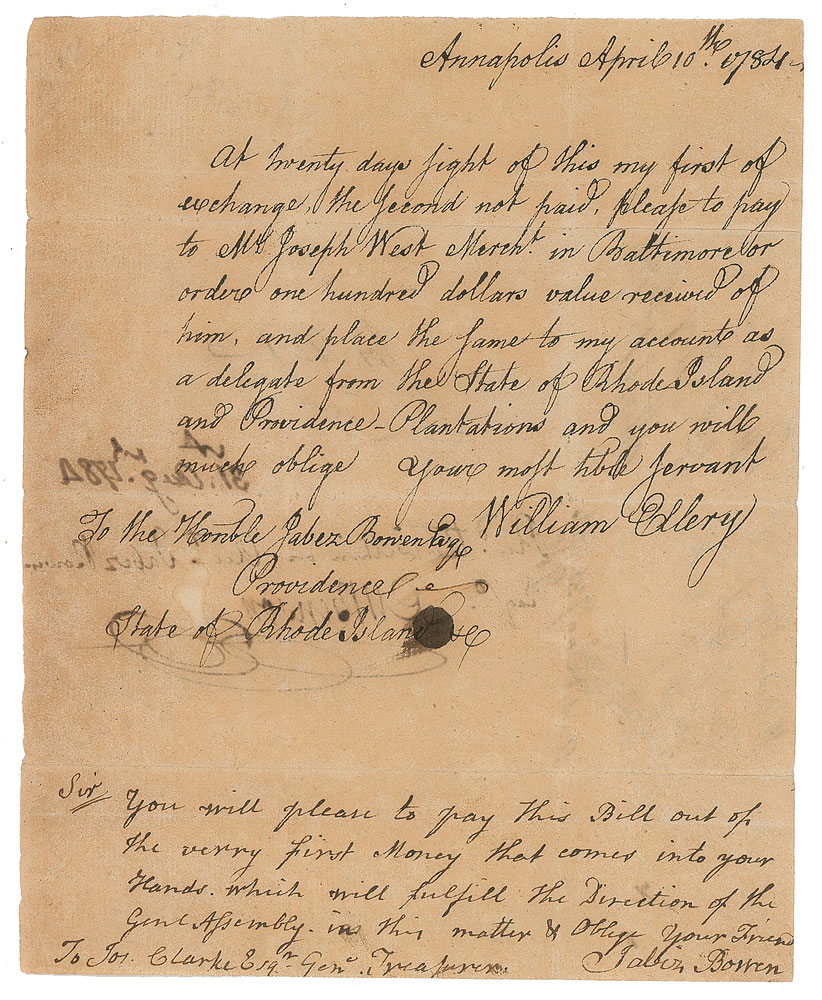 Annapolis April 10th. 1784
At twenty days sight of this my first of
exchange, the second not paid, please to pay
to Mr. Joseph West Mercht. in Baltimore or
order one hundred dollars value received of
him, and place the same to my account as
a delegate from the State of Rhode Island
and Providence-Plantations and you will
much oblige your most hble servant
William Ellery
To the Honble Jabez Bowen Esqr
Providence
State of Rhode Island &c
Sir You will please to pay this Bill out of
the verry first Money that comes into your
Hands. which will fulfill the Direction of the
Genl Assembly. in this matter & Oblige Your Friend
Jabez Bowen
To Jos. Clarke Esqr Genl. Treasurer.